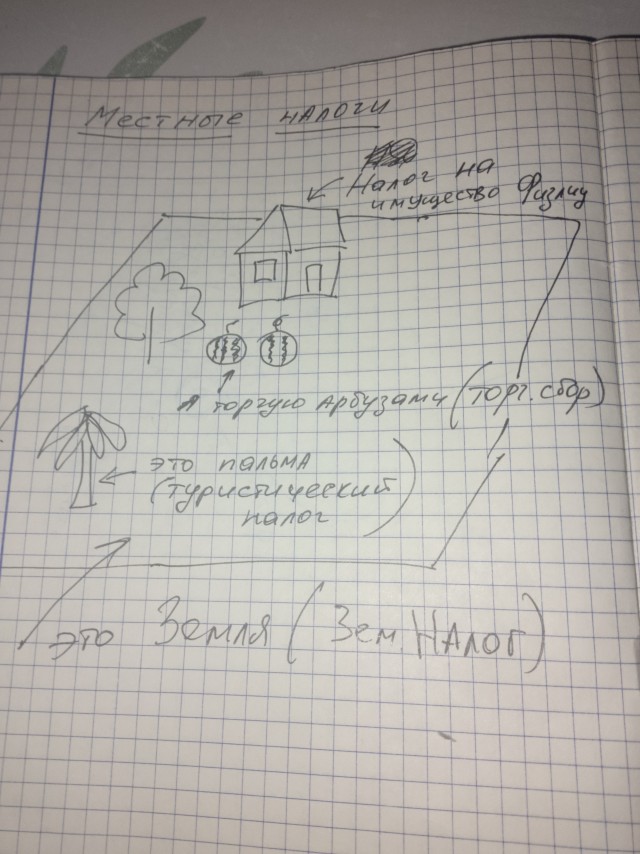 Местные налоги
Налог на
имущество Физлиц
Я торгую арбузами (торг. сбор)
это пальма
(туристический
налог)
это Земля (Зем. Налог)